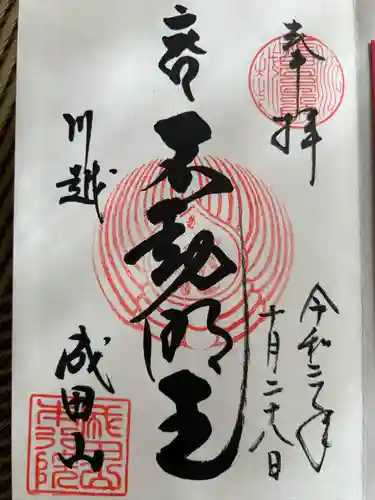 奉拝
令和三年
十月二十八日
不動明王
川越
成田山